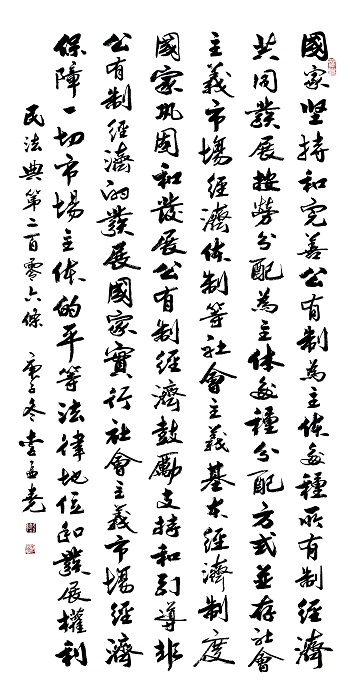 國家坚持和完善公有制為主体多種所有制經濟
共同發展按勞分配為主体多種分配方式並存社會
主義市場經濟体制等社會主義基本經濟制度
國家巩固和發展公有制經濟鼓勵支持和引導非
公有制經濟的發展國家實行社會主義市場經濟
保障一切市場主体的平等法律地位和發展權利
民法典第二百零六條 庚子冬